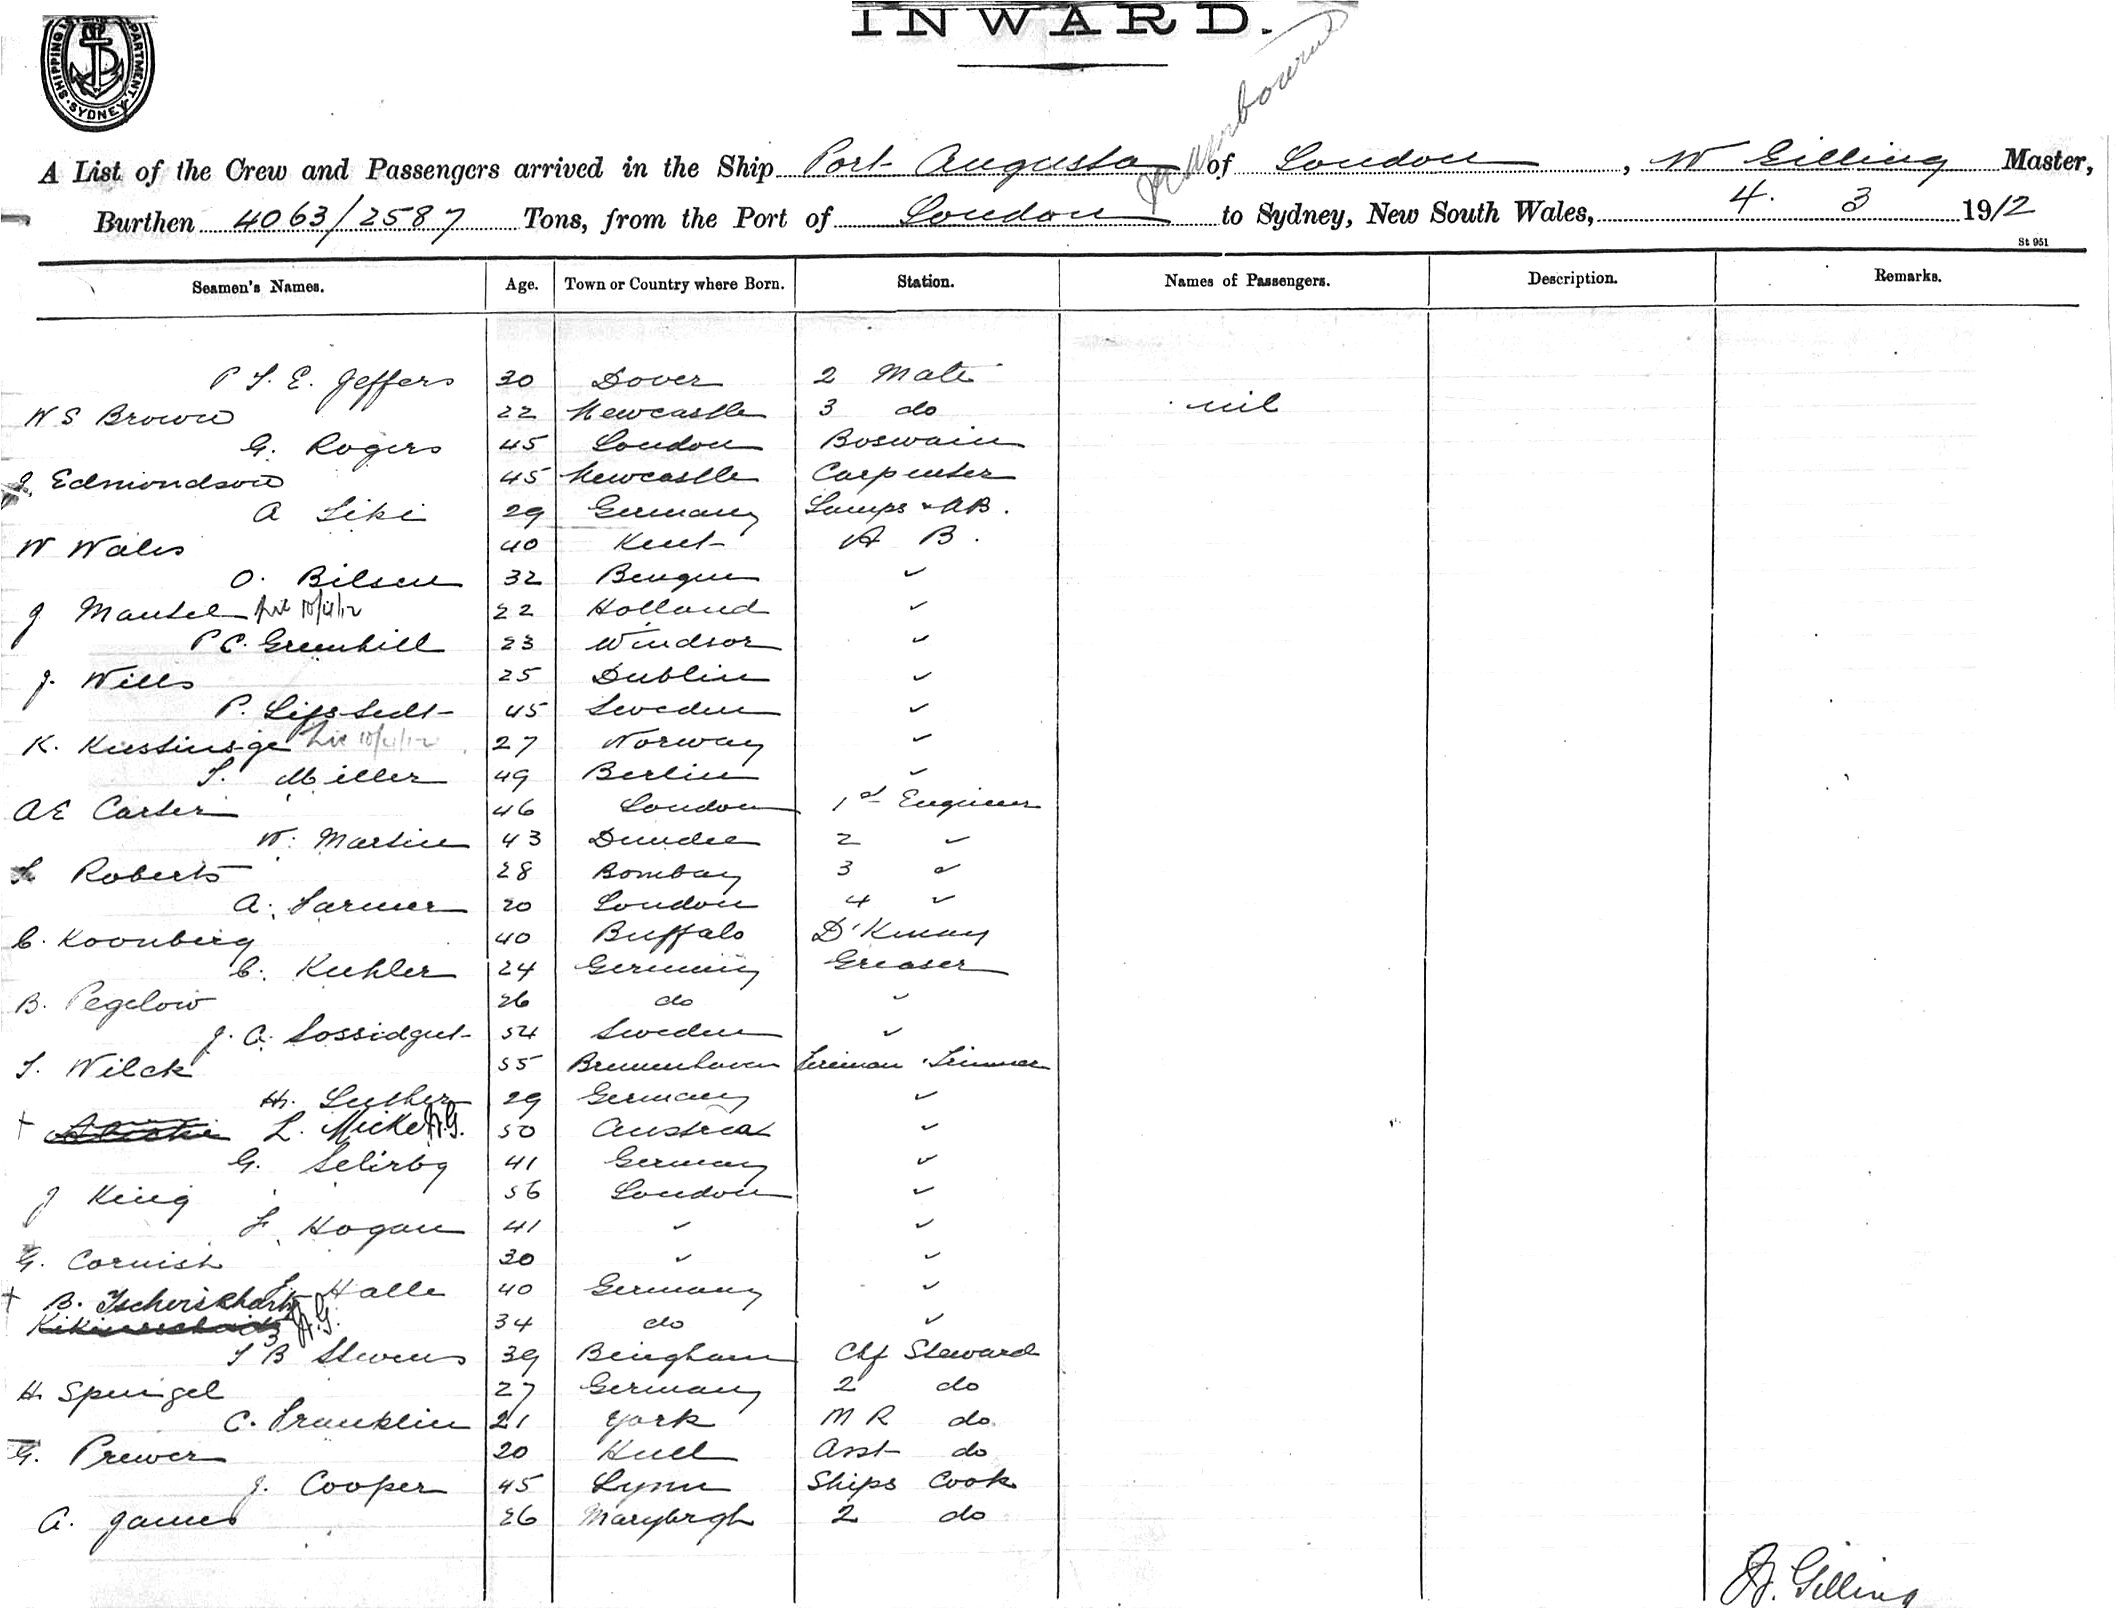 INWARD.
SHIPPING DEPARTMENT SYDNEY
A List of the Crew and Passengers arrived in the Ship Port Augusta of London, W Gilling Master,
Burthen 4063/2587 Tons, from the Port of London to Sydney, New South Wales, 4. 3 1912
St 951
Seamen's Names. Age. Town or Country where Born. Station. Names of Passengers. Description. Remarks.
P. S. E. Jeffers 30 Dover 2 Mate
W S Brown 22 Newcastle 3 do nil
G. Rogers 45 London Boswain
J. Edmondson 45 Newcastle Carpenter
A Liki 29 Germany Lamps & AB.
W Wales 40 Kent A B.
O. Bilsen 32 Bengen "
J Mantel 10/4/12 22 Holland "
P C. Greenhill 23 Windsor "
J. Wills 25 Dublin "
P. Lipstedt 45 Sweden "
K. 10/4/12 27 Norway "
Miller 49 Berlin "
AE Carter 46 London 1st Engineer
W. Martin 43 Dundee 2 "
Roberts 28 Bombay 3 "
A. Farmer 20 London 4 "
C. Koonberg 40 Buffalo D'Kman
C. Kuhler 24 Germany Greaser
B. Pegelow 26 do "
J. C. 54 Sweden "
Wilck 55 Bremenhaven Fireman & Trimmer
H. Luther 29 Germany "
+ L. Micke 50 Austria "
G. 41 Germany "
J King 56 London "
Hogan 41 " "
G. Cornish 30 " "
Halle 40 Germany "
+ B. 34 do "
B Stevens 39 Bingham Chf Steward
H. Spengel 27 Germany 2 do
C. Franklin 21 York M R do
G. Prewer 20 Hull Asst do
J. Cooper 45 Lynn Ships Cook
A. James 26 Marybrgh 2 do
Gilling